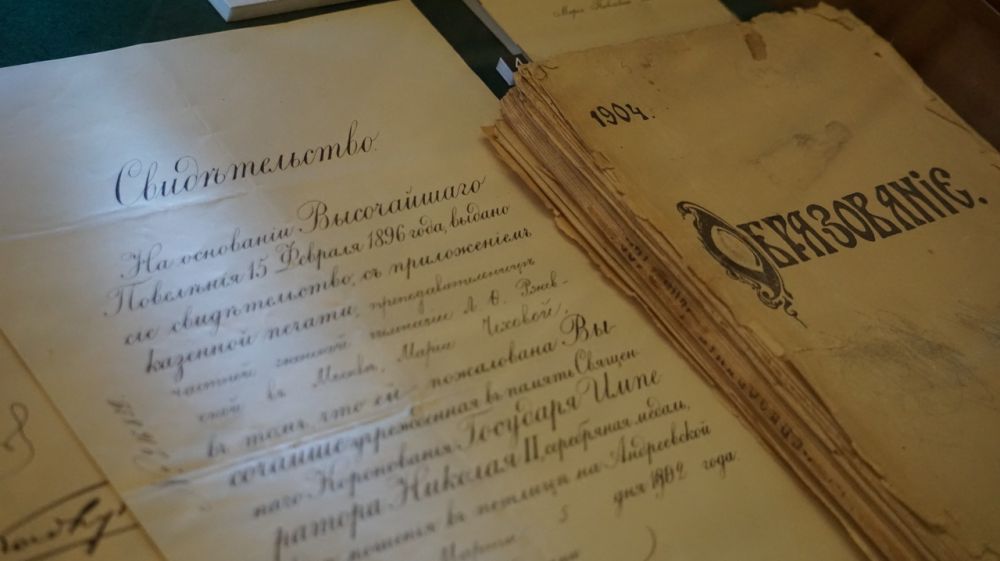 Свидѣтельство.
На основаніи Высочайшаго
Повелѣнія 15 Февраля 1896 года, выдано
сіе свидѣтельство, съ приложеніемъ
казенной печати, преподавательницѣ
частной женской гимназіи Л. Ѳ. Ржев-
ской въ Москвѣ, Маріи Чеховой,
въ томъ, что ей пожалована Вы-
сочайше учрежденная въ память Священ
наго Коронованія Государя Импе
ратора Николая II, серебряная медаль,
ношенія въ петлицѣ на Андреевской
Марта 5 дня 1902 года.
1904.
Образованіе.